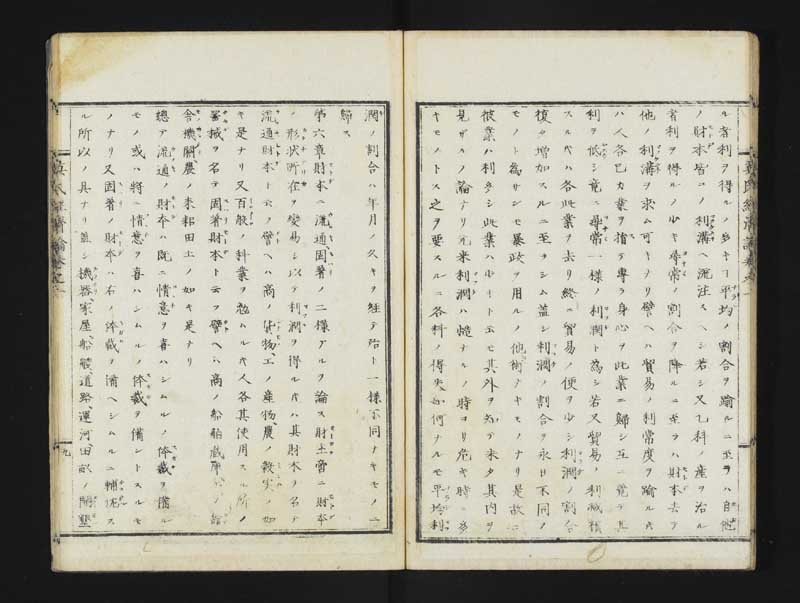 ル者利ヲ得ルノ多キ平均ノ割合ヲ踰ルニ至ラハ自他
ノ財本皆コノ利溝ヘ流注スヘシ若シ又乙科ノ産ヲ治ル
者利ヲ得ルノ少キ尋常ノ割合ヲ降ルニ至ラハ財本去テ
他ノ利溝ヲ求ム可キナリ譬ヘハ貿易ノ利常度ヲ踰ル片
ハ人各己カ業ヲ捨テ専ラ身心ヲ此業ニ歸シ互ニ競テ其
利ヲ低シ竟ニ尋常一様ノ利潤ト為シ若又貿易ノ利減
スル片ハ各此業ヲ去リ終ニ貿易ノ便ヲ少シ利潤ノ割合
復タ増加スルニ至ラシム蓋シ利潤ノ割合ヲ永ク不同ノ
モノト為サンモ暴政ヲ用ルノ他術ナキモノナリ是故ニ
彼業ハ利多シ此業ハ少シト云モ其外ヲ知テ未タ其内ヲ
見ザルノ論ナリ元来利潤ハ慥ナルノ時ヨリ危キ時ニ多
キモノトス之ヲ要スルニ各科ノ得失如何ナルモ平均利
潤ノ割合ハ年月ノ久キヲ経テ殆ト一様不同ナキモノニ
歸ス
第六章財本ニ流通固著ノ二様アルヲ論ス財主嘗ニ財本
ノ形状所在ヲ変易シ以テ利潤ヲ得ル片ハ其財本ヲ名テ
流通財本ト云フ譬ヘハ商ノ貨物工ノ産物農ノ穀実ノ如
キ是ナリ又百般ノ科業ヲ勉ムル片人各其使用スル所ノ
器械ヲ名テ固著財本ト云フ譬ヘハ商ノ船舶蔵庫工ノ舘
舎機関農ノ耒耜田土ノ如キ是ナリ
総テ流通ノ財本ハ既ニ情意ヲ喜ハシムルノ体裁ヲ備ル
モノ或ハ将ニ情意ヲ喜ハシムルノ体裁ヲ備ントスルモ
ノナリ又固著ノ財本ハ右ノ体裁ヲ備ヘシムルニ輔佐ス
ル所以ノ具ナリ蓋シ機器家屋船艘道路運河田畝ノ開墾
九